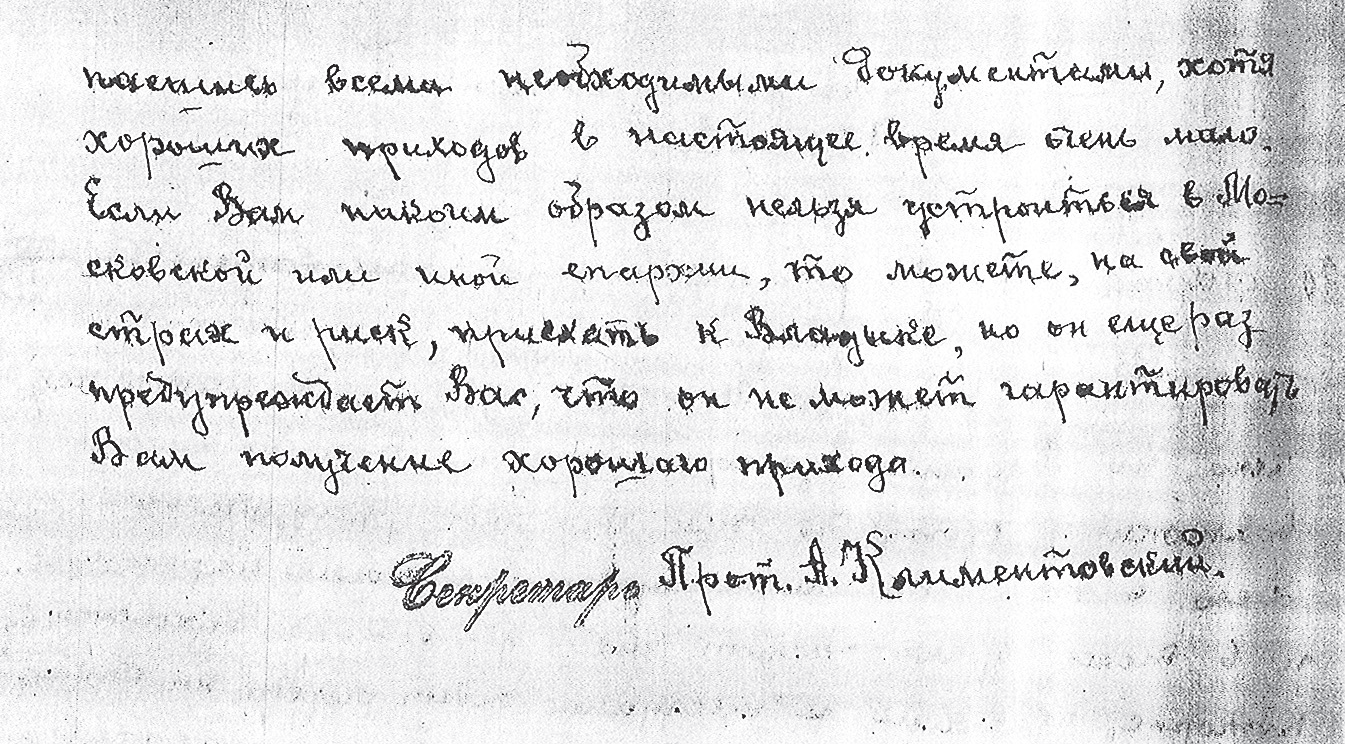 всеми необходимыми документами, хотя
хороших приходов в настоящее время очень мало.
Если Вам никоим образом нельзя устроиться в Мо-
сковской или иной епархии, то можете, на свой
страх и риск, приехать к Владыке, но он еще раз
предупреждает Вас, что он не может гарантировать
Вам получение хорошаго прихода.
Секретарь Прот. А. Климентовский.